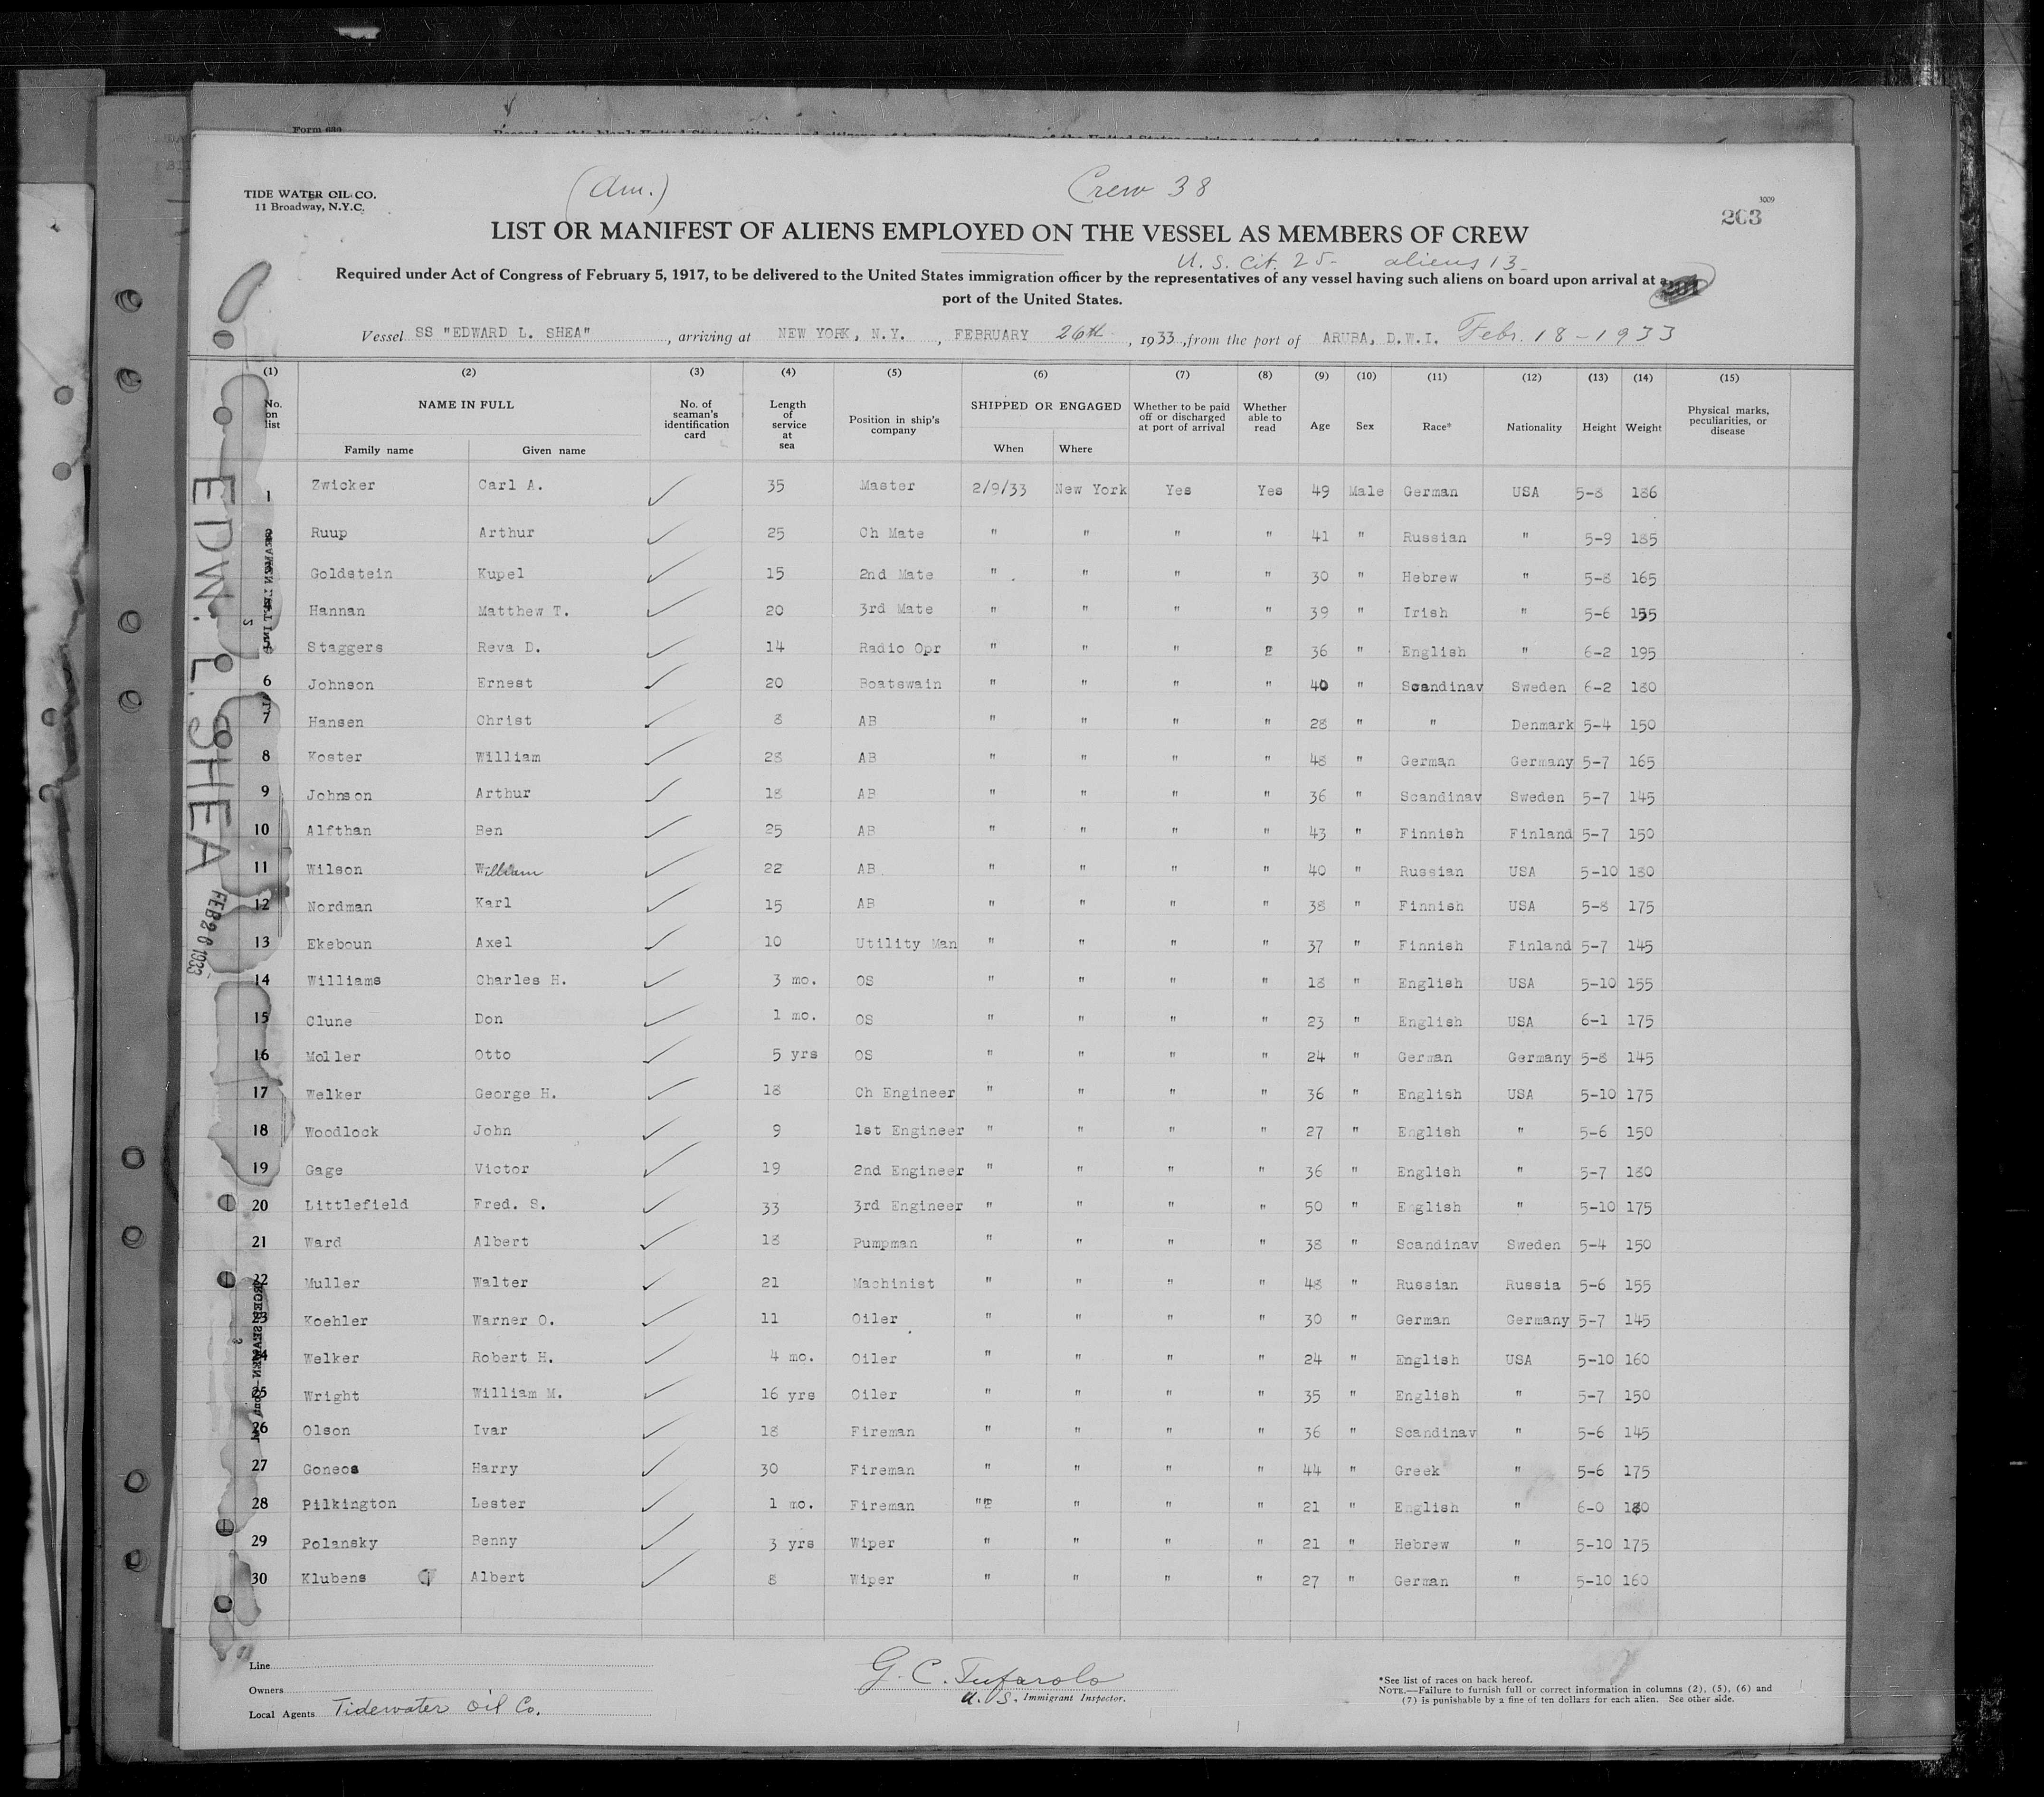 Form 689
TIDE WATER OIL CO.
11 Broadway, N.Y.C.
(Am.)
Crew 38
3009
203
LIST OR MANIFEST OF ALIENS EMPLOYED ON THE VESSEL AS MEMBERS OF CREW
U. S. Cit. 25- aliens 13-
Required under Act of Congress of February 5, 1917, to be delivered to the United States immigration officer by the representatives of any vessel having such aliens on board upon arrival at a
port of the United States.
201
Vessel SS "EDWARD L. SHEA", arriving at NEW YORK, N.Y., FEBRUARY 26th, 1933, from the port of ARUBA, D.W.I. Febr. 18-1933
(1) (2) (3) (4) (5) (6) (7) (8) (9) (10) (11) (12) (13) (14) (15)
No. on list NAME IN FULL Family name Given name No. of seaman's identification card Length of service at sea Position in ship's company SHIPPED OR ENGAGED When Where Whether to be paid off or discharged at port of arrival Whether able to read Age Sex Race* Nationality Height Weight Physical marks, peculiarities, or disease
1 Zwicker Carl A. ✓ 35 Master 2/9/33 New York Yes Yes 49 Male German USA 5-8 186
Ruup Arthur ✓ 25 Ch Mate " " " " 41 " Russian " 5-9 185
Goldstein Kupel ✓ 15 2nd Mate " " " " 30 " Hebrew " 5-8 165
4 Hannan Matthew T. ✓ 20 3rd Mate " " " " 39 " Irish " 5-6 155
Staggers Reva D. ✓ 14 Radio Opr " " " " 36 " English " 6-2 195
6 Johnson Ernest ✓ 20 Boatswain " " " " 40 " Scandinav Sweden 6-2 180
7 Hansen Christ ✓ 8 AB " " " " 28 " " Denmark 5-4 150
8 Koster William ✓ 28 AB " " " " 48 " German Germany 5-7 165
9 Johnson Arthur ✓ 18 AB " " " " 36 " Scandinav Sweden 5-7 145
10 Alfthan Ben ✓ 25 AB " " " " 43 " Finnish Finland 5-7 150
11 Wilson William ✓ 22 AB " " " " 40 " Russian USA 5-10 180
12 Nordman Karl ✓ 15 AB " " " " 38 " Finnish USA 5-8 175
13 Ekeboun Axel ✓ 10 Utility Man " " " " 37 " Finnish Finland 5-7 145
14 Williams Charles H. ✓ 3 mo. OS " " " " 18 " English USA 5-10 155
15 Clune Don ✓ 1 mo. OS " " " " 23 " English USA 6-1 175
16 Moller Otto ✓ 5 yrs OS " " " " 24 " German Germany 5-8 145
17 Welker George H. ✓ 18 Ch Engineer " " " " 36 " English USA 5-10 175
18 Woodlock John ✓ 9 1st Engineer " " " " 27 " English " 5-6 150
19 Gage Victor ✓ 19 2nd Engineer " " " " 36 " English " 5-7 180
20 Littlefield Fred. S. ✓ 33 3rd Engineer " " " " 50 " English " 5-10 175
21 Ward Albert ✓ 18 Pumpman " " " " 38 " Scandinav Sweden 5-4 150
22 Muller Walter ✓ 21 Machinist " " " " 48 " Russian Russia 5-6 155
23 Koehler Warner O. ✓ 11 Oiler " " " " 30 " German Germany 5-7 145
24 Welker Robert H. ✓ 4 mo. Oiler " " " " 24 " English USA 5-10 160
25 Wright William M. ✓ 16 yrs Oiler " " " " 35 " English " 5-7 150
26 Olson Ivar ✓ 18 Fireman " " " " 36 " Scandinav " 5-6 145
27 Goneos Harry ✓ 30 Fireman " " " " 44 " Greek " 5-6 175
28 Pilkington Lester ✓ 1 mo. Fireman " " " " 21 " English " 6-0 180
29 Polansky Benny ✓ 3 yrs Wiper " " " " 21 " Hebrew " 5-10 175
30 Klubens Albert ✓ 8 Wiper " " " " 27 " German " 5-10 160
EDW. L. SHEA
FEB 26 1933
Line
Owners
Local Agents Tidewater Oil Co.
G. C. Tufarolo
U. S. Immigrant Inspector.
*See list of races on back hereof.
NOTE.—Failure to furnish full or correct information in columns (2), (5), (6) and
(7) is punishable by a fine of ten dollars for each alien. See other side.